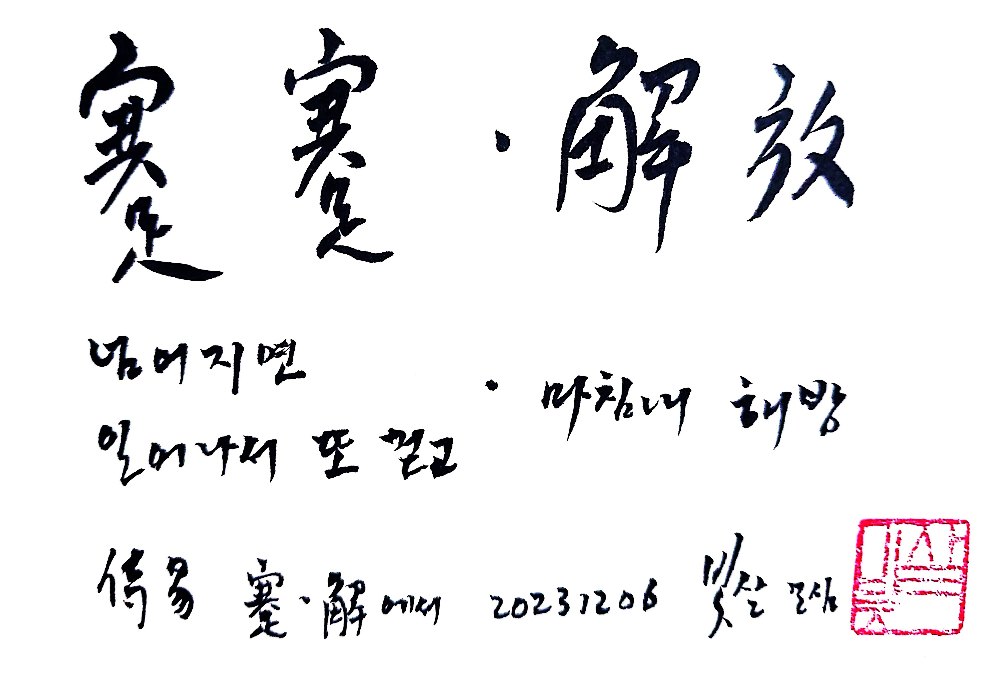 蹇 蹇 · 解 放
넘어지면
일어나서 또 걷고 · 마침내 해방
蹇·解에서 20231206 빛살 모심
빛살